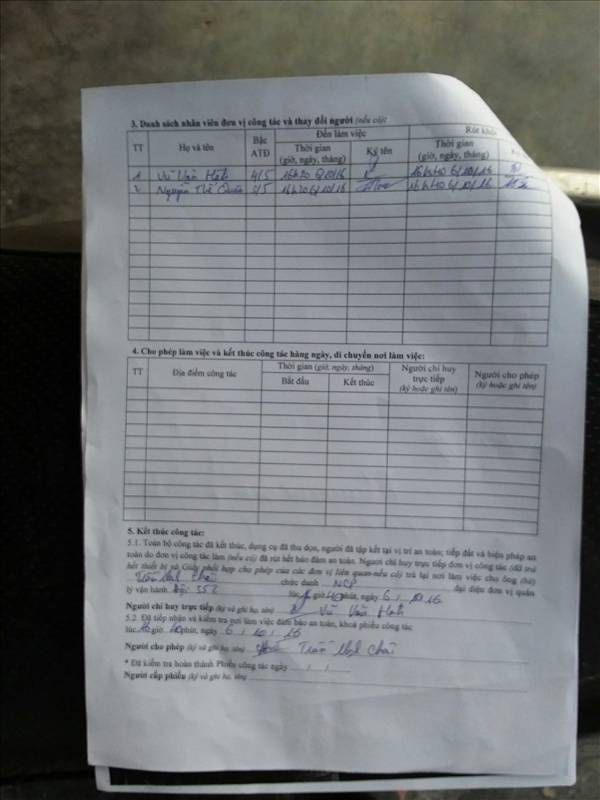 3. Danh sách nhân viên đơn vị công tác và thay đổi người (nếu có):
TT Họ và tên Bậc ATĐ Đến làm việc Rút khỏi
Thời gian (giờ, ngày, tháng) Ký tên Thời gian (giờ, ngày, tháng)
1 Vũ Văn 4/5 16h20 6/10/16 16h40 6/10/16
2 Nguyễn Thế 4/5 16h20 6/10/16 16h40 6/10/16
4. Cho phép làm việc và kết thúc công tác hàng ngày, di chuyển nơi làm việc:
TT Địa điểm công tác Thời gian (giờ, ngày, tháng) Người chỉ huy trực tiếp (ký hoặc ghi tên) Người cho phép (ký hoặc ghi tên)
Bắt đầu Kết thúc
5. Kết thúc công tác:
5.1. Toàn bộ công tác đã kết thúc, dụng cụ đã thu dọn, người đã tập kết tại vị trí an toàn; tiếp đất và biện pháp an
toàn do đơn vị công tác làm (nếu có) đã rút hết bảo đảm an toàn. Người chỉ huy trực tiếp đơn vị công tác (đã trả
hết thiết bị và Giấy phối hợp cho phép của các đơn vị liên quan-nếu có) trả lại nơi làm việc cho ông (bà)
Trần chức danh NCP đại diện đơn vị quản
lý vận hành lúc giờ 40 phút, ngày 6 / 10 / 16
Người chỉ huy trực tiếp (ký và ghi họ, tên) Vũ Văn
5.2. Đã tiếp nhận và kiểm tra nơi làm việc đảm bảo an toàn, khoá phiếu công tác
lúc 16 giờ 40 phút, ngày 6 / 10 / 16
Người cho phép (ký và ghi họ, tên) Trần
* Đã kiểm tra hoàn thành Phiếu công tác ngày / /
Người cấp phiếu (ký và ghi họ, tên)